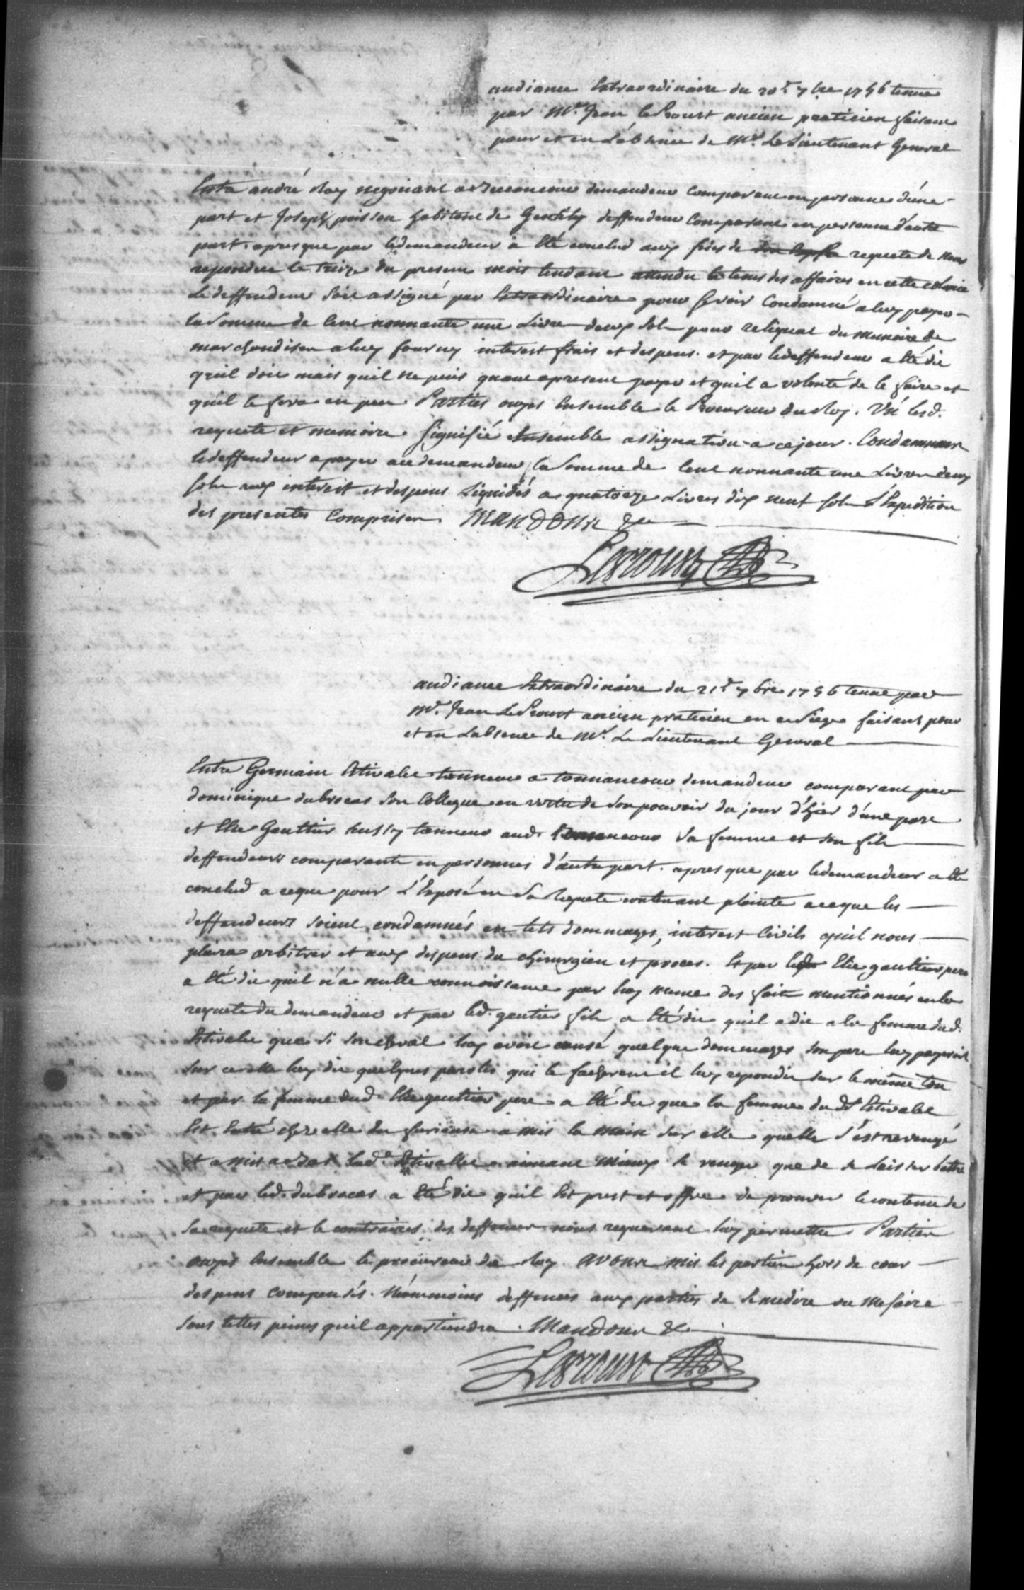 audiance Extraordinaire du 20e 7bre 1756 tenue
par Mr. Jean le Proust ancien praticien faisant
pour et en Labsence de Mr. Le Lieutenant General
Entre andré Roy negociant demandeur comparant en personne d'une
part et Joseph poisson habitant de Gentilly deffendeur Comparant en personne d'autre
part. apres que par le demandeur a Eté conclud aux fins de requete de nous
repondue le treize du present mois tendant attendu le tems des affaires en cette colonie
Le deffendeur soit assigné par Extraordinaire pour se voir Condamné a luy payer
la Somme de Cent nonnante une Livre deux Sols pour reliquat du memoire de
marchandises a luy fourny interest frais et despens. et par le deffendeur a Eté dit
qu'il doit mais quil ne peut quant apresent payer et quil a volonté de le faire et
quil le fera en peu Parties ouyes Ensemble le Procureur du Roy. Vû lesd.
requete et memoire Signifié Ensemble assignation a ce jour. Condamnons
le deffendeur a payer au demandeur la Somme de Cent nonnante une Livre deux
sols aux interest et despens Liquidés a quatorze Livres dix neuf sols L'Expedition
des presentes Comprise Mandons &c
Leproust
audiance Extraordinaire du 21e 7bre 1756 tenue par
Mr. Jean Le Proust ancien praticien en ce Siege faisant pour
et en Labsence de Mr. Le Lieutenant General
Entre Germain Etivalet tonnancour demandeur comparant par
dominique dubrocas Son Collegue en vertu de Son pouvoir du jour d'hier d'une part
et Elie Gauthier aud. tonnancour Sa femme et Son fils
deffendeurs comparants en personnes d'autre part. apres que par le demandeur a Eté
conclud a ce que pour L'Exposé en Sa Requete contenant plainte a ce que les
deffendeurs soient condamnés en tels dommages, interest Civils qu'il nous
plaira arbitrer et aux despens du chirurgien et proces. Et par led. Elie gautier pere
a Eté dit quil n'a nulle connoissance par luy meme des faits mentionnés en la
requete du demandeur et par led. gautier fils a Eté dit quil a dit a la femme dud.
Etivalet que Si Son cheval luy avoit causé quelque dommages Son pere luy payeroit
Sur ce elle luy dit quelques paroles qui le facherent il luy repondit sur le même ton
et par la femme dud. Elie gautier pere a Eté dit que la femme du dt. Etivalet
Est Entré chez elle en furieuse a mis la main sur elle quelle S'est revengé
lad. Etivallet aimant mieux se venger que de se laisser battre
et par led. dubrocas a Eté dit quil Est prest et offre de prouver le contenu de
Sa requete et le contraire des deffences nous requerant luy permettre Partie
ouyes Ensemble le procureur du Roy avons mis les parties hors de cour
despens compensés. Néammoins deffences aux parties de Se medire ou mefaire
Sous telles peines quil appartiendra. Mandons &c
Leproust